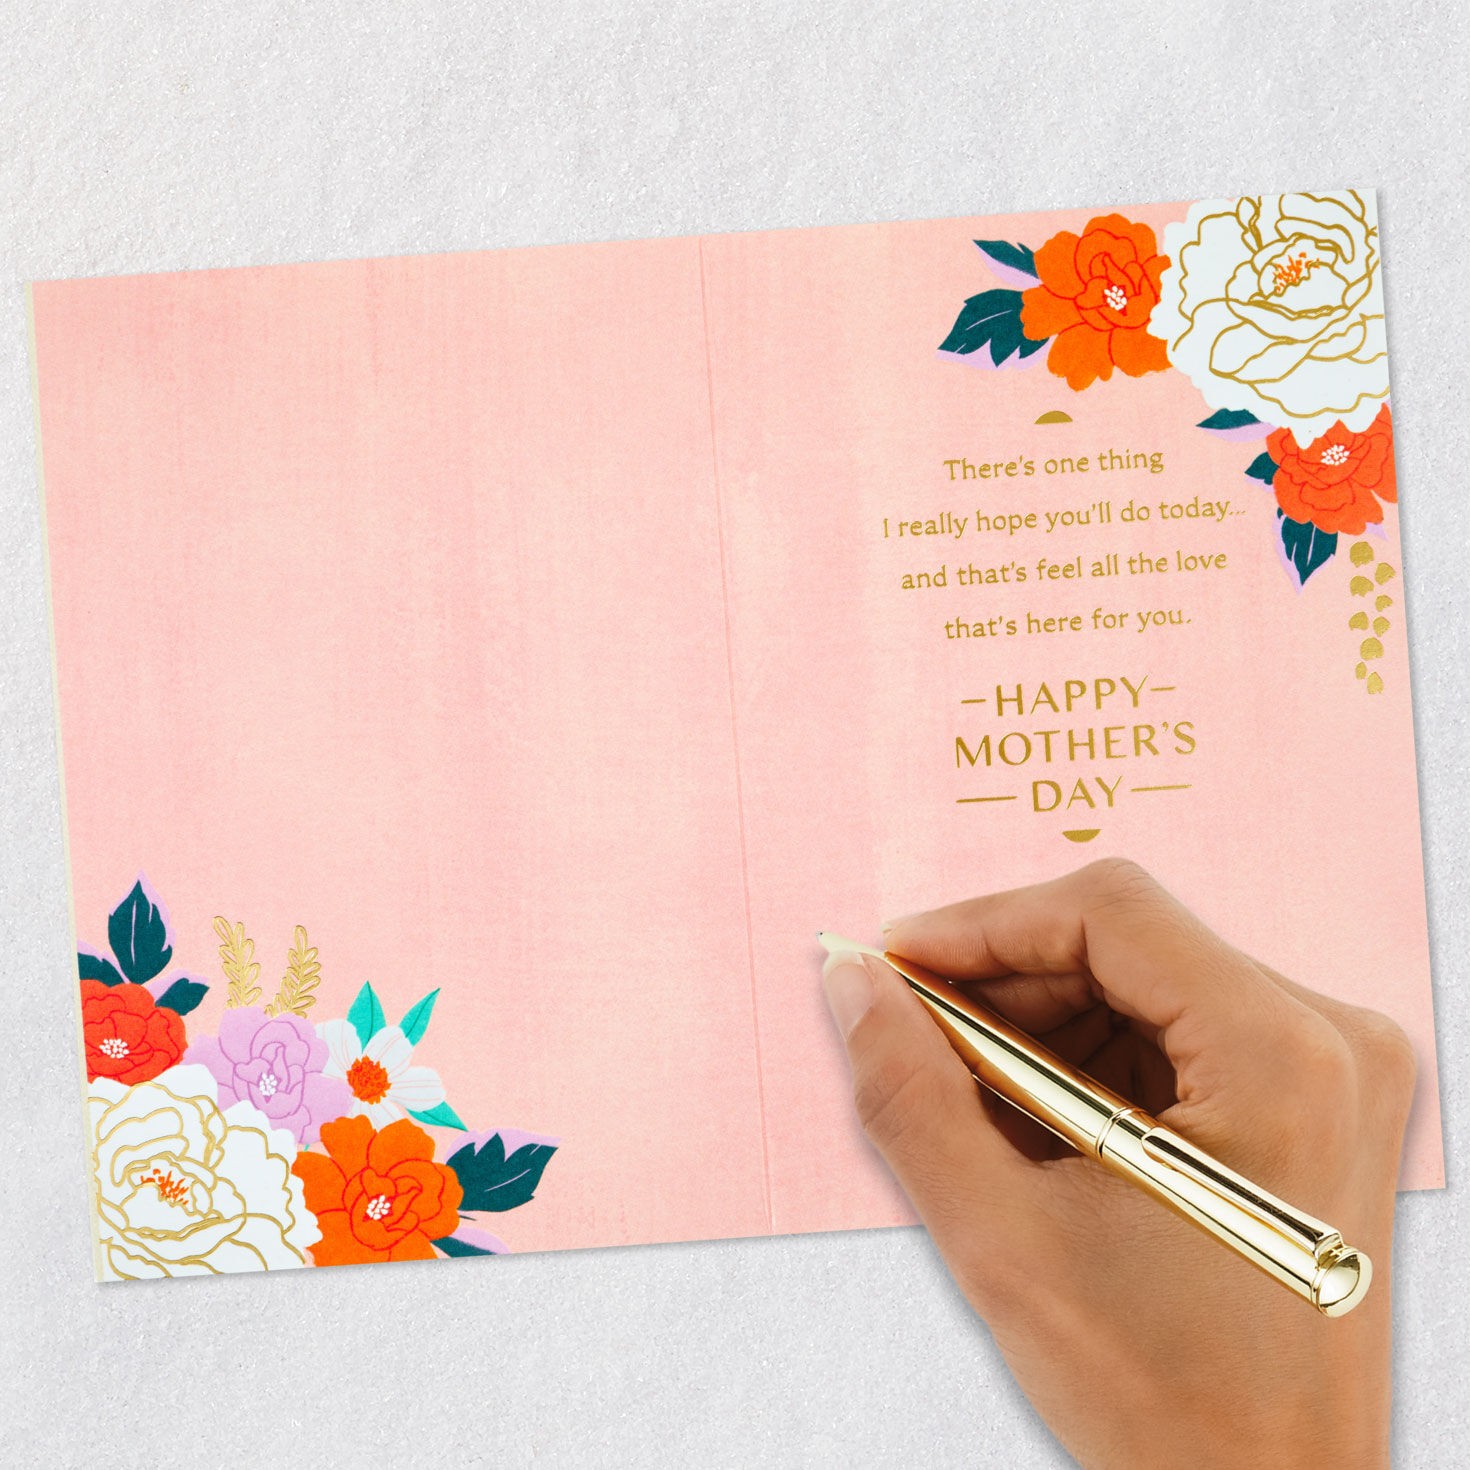 There's one thing
I really hope you'll do today...
and that's feel all the love
that's here for you.
–HAPPY–
MOTHER'S
—DAY—